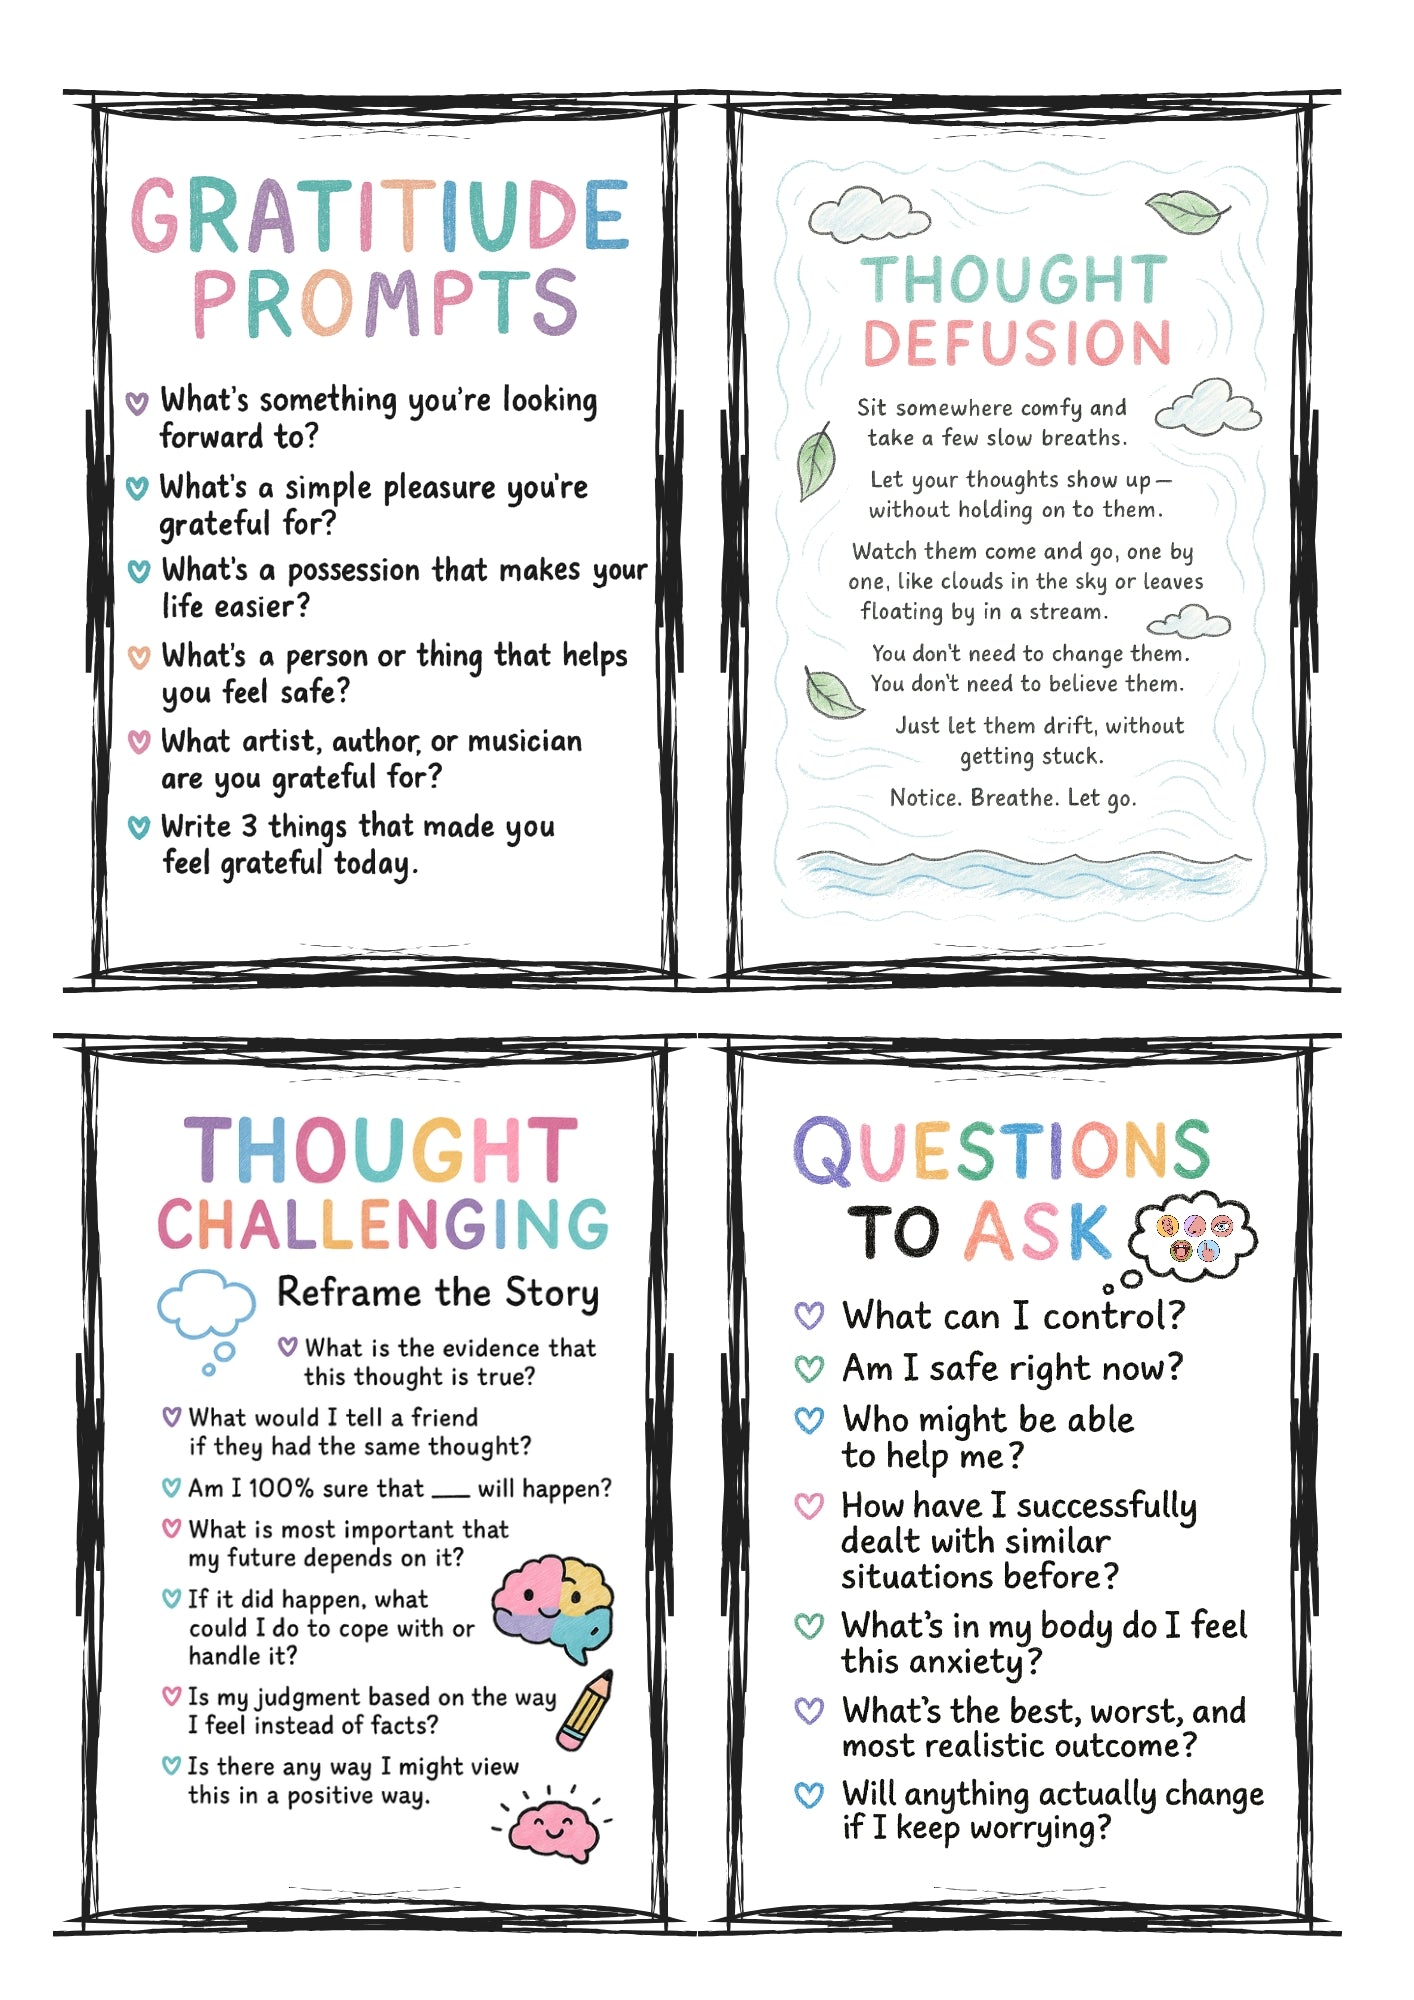 GRATITIUDE
PROMPTS
What's something you're looking
forward to?
What's a simple pleasure you're
grateful for?
What's a possession that makes your
life easier?
What's a person or thing that helps
you feel safe?
What artist, author, or musician
are you grateful for?
Write 3 things that made you
feel grateful today.
THOUGHT
DEFUSION
Sit somewhere comfy and
take a few slow breaths.
Let your thoughts show up—
without holding on to them.
Watch them come and go, one by
one, like clouds in the sky or leaves
floating by in a stream.
You don't need to change them.
You don't need to believe them.
Just let them drift, without
getting stuck.
Notice. Breathe. Let go.
THOUGHT
CHALLENGING
Reframe the Story
What is the evidence that
this thought is true?
What would I tell a friend
if they had the same thought?
Am I 100% sure that ___ will happen?
What is most important that
my future depends on it?
If it did happen, what
could I do to cope with or
handle it?
Is my judgment based on the way
I feel instead of facts?
Is there any way I might view
this in a positive way.
QUESTIONS
TO ASK
What can I control?
Am I safe right now?
Who might be able
to help me?
How have I successfully
dealt with similar
situations before?
What's in my body do I feel
this anxiety?
What's the best, worst, and
most realistic outcome?
Will anything actually change
if I keep worrying?